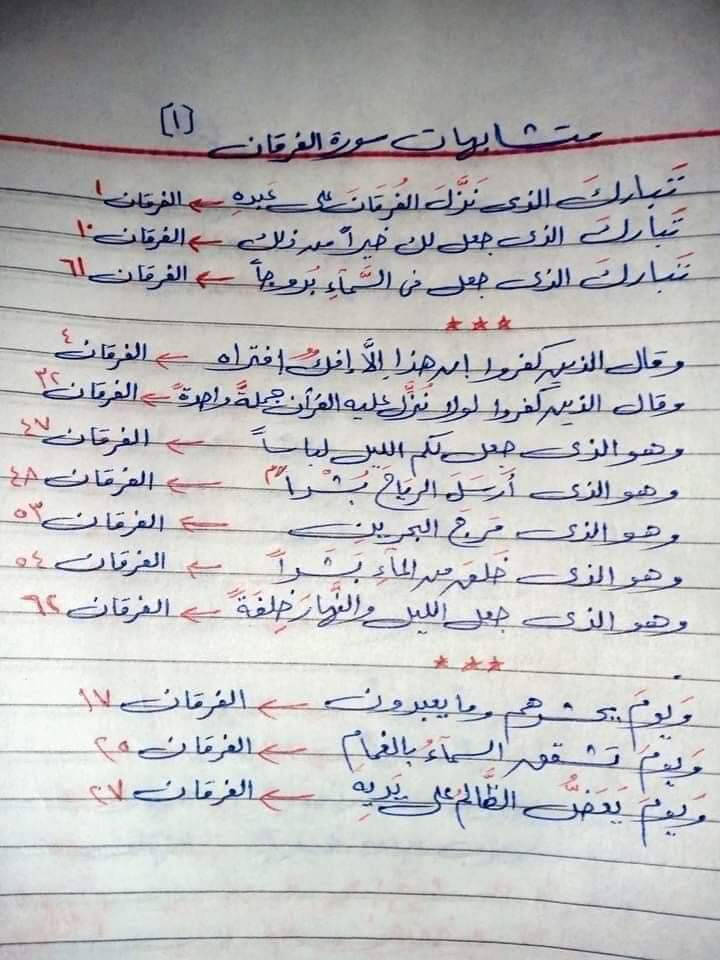 متشابهات سورة الفرقان [١]
تَبَارك الذى نَزَّلَ الفُرقَانَ على عَبدِهِ ← الفرقان ١
تَبَارك الذى جعل لك خيراً من ذلك ← الفرقان ١٠
تَبَارك الذى جعل فى السَّمَآءِ بُروجاً ← الفرقان ٦١
***
وقال الذين كفروا إن هذا إلَّا إفكٌ افتراه ← الفرقان ٤
وقال الذين كفروا لولا نُزِّلَ عليه القرآن جملةً واحدةً ← الفرقان ٣٢
وهو الذى جعل لكم الليل لباساً ← الفرقان ٤٧
وهو الذى أَرسَلَ الرياحَ بُشْراً ← الفرقان ٤٨
وهو الذى مَرَجَ البحرينِ ← الفرقان ٥٣
وهو الذى خَلَقَ من المَآءِ بَشَراً ← الفرقان ٥٤
وهو الذى جعل الليل والنَّهارَ خِلفَةً ← الفرقان ٦٢
***
وَيَومَ يحشرهم وما يعبدون ← الفرقان ١٧
وَيَومَ تَشقق السمآءُ بالغمامِ ← الفرقان ٢٥
وَيَومَ يَعَضُّ الظَّالمُ على يَديهِ ← الفرقان ٢٧